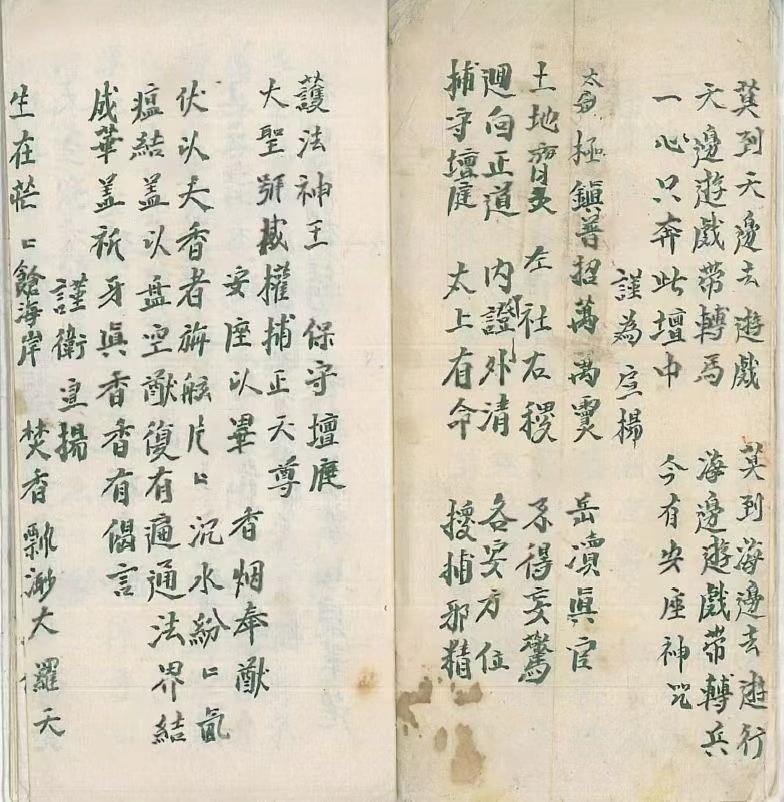 莫到天邊去遊戲 莫到海邊去遊行
天邊遊戲帶轉馬 海邊遊戲帶轉兵
一心只奔此壇中 今有安座神咒
謹為宣揚
太極鎮普招萬萬霛 岳瀆眞官
土地 左社右稷 不得妄驚
迴向正道 內證外清 各安方位
捕守壇庭 太上有命 搜捕邪精
護法神王 保守壇庭
大聖 權捕正天尊
安座以畢 香烟奉献
伏以夫香者旃 片〻沉水紛〻氤
瘟結盖以盘空献復有遍通法界結
成華盖祈牙眞香香有偈言
謹衛宣揚
生在茫〻滄海岸 焚香飄渺大儸天